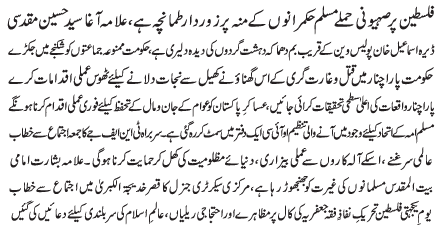 فلسطین پر صہیونی حملے مسلم حکمرانوں کے منہ پر زور دار طمانچہ ہے، علامہ آغا سید حسین مقدسی
ڈیرہ اسماعیل خان پولیس وین کے قریب بم دھماکہ دہشت گردوں کی دیدہ دلیری ہے، حکومت ممنوعہ جماعتوں کو شکنجے میں جکڑے
حکومت پارا چنار میں قتل و غارت گری کے اس گھناؤنے کھیل سے نجات دلانے کیلئے ٹھوس عملی اقدامات کرے
پارا چنار واقعات کی اعلی سطحی تحقیقات کرائی جائیں، عساکر پاکستان کو عوام کے جان و مال کے تحفظ کیلئے فوری عملی اقدام کرنا ہونگے
مسلم امہ کے اتحاد کیلئے وجود میں آنے والی تنظیم او آئی سی ایک دفتر میں سمٹ کر رہ گئی ہے۔ سربراہ ٹی این ایف جے کا جمعہ اجتماع سے خطاب
عالمی سرغنے، اسکے آلہ کاروں سے عملی بیزاری، دنیائے مظلومیت کی کھل کر حمایت کرنا ہوگی۔ علامہ بشارت امامی
بیت المقدس مسلمانوں کی غیرت کو جھنجھوڑ رہا ہے، مرکزی سیکرٹری جنرل کا قصر خدیجۃ الکبریٰ میں اجتماع سے خطاب
یوم یکجہتی فلسطین تحریک نفاذ فقہ جعفریہ کی کال پر مظاہرے اور احتجاجی ریلیاں، عالم اسلام کی سربلندی کیلئے دعائیں کی گئیں